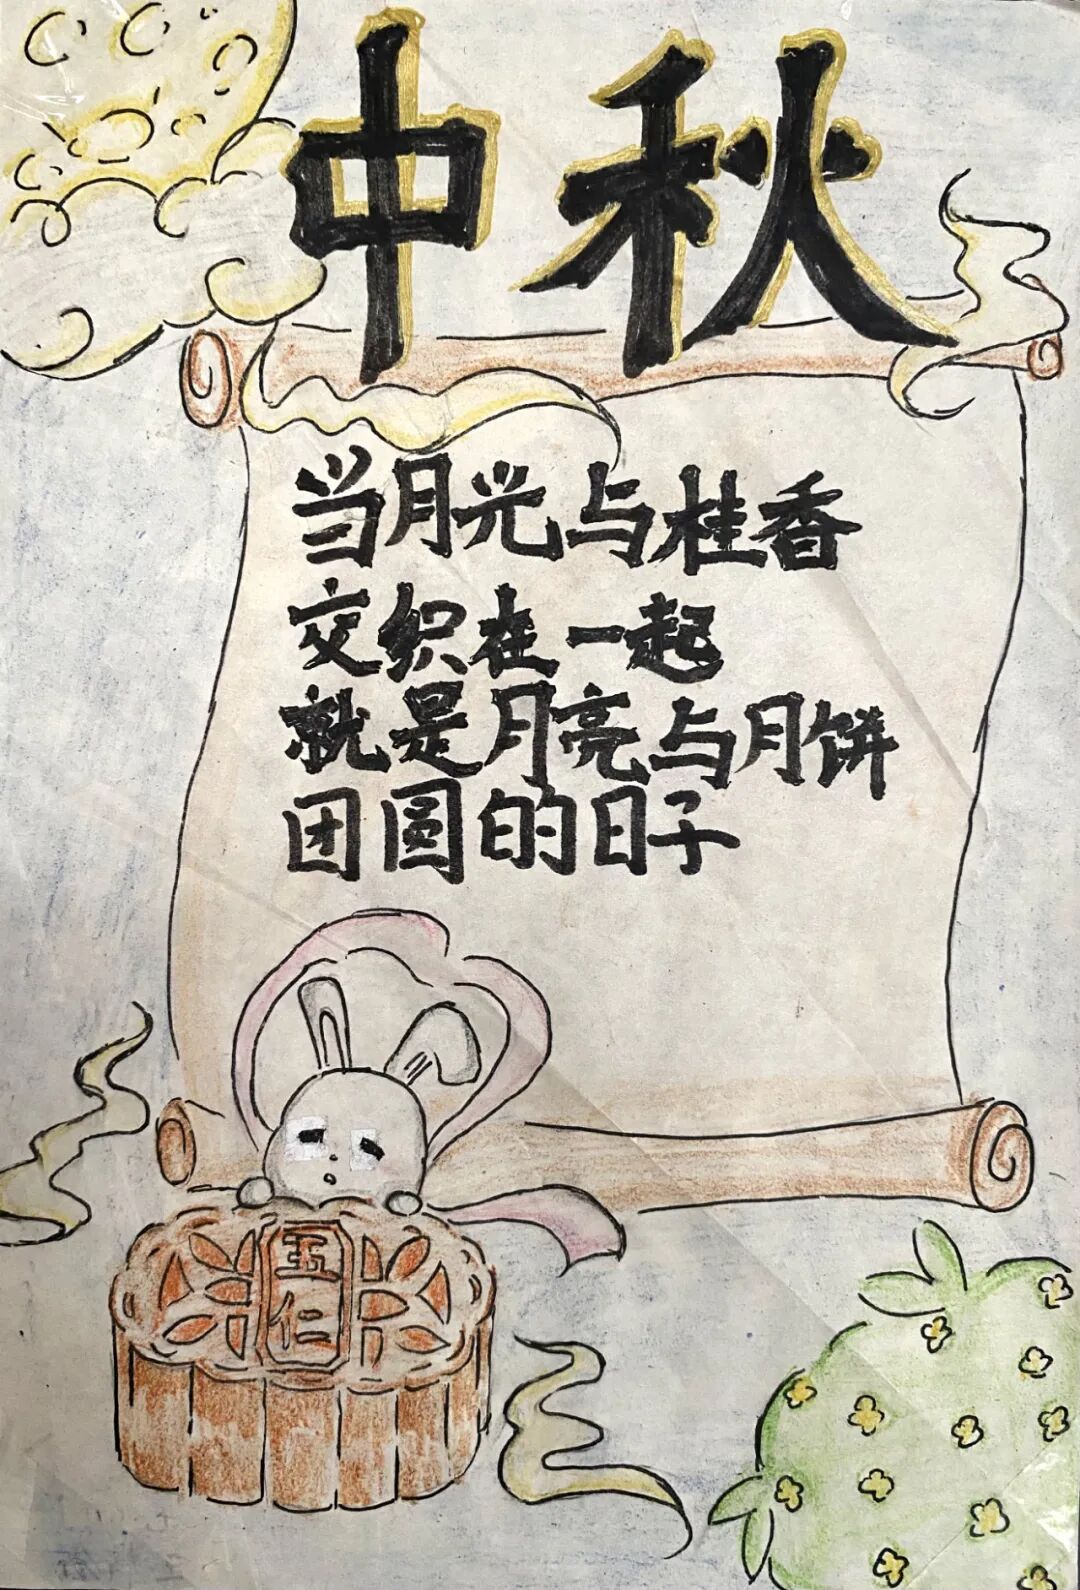 中秋
当月光与桂香
交织在一起
就是月亮与月饼
团圆的日子
五仁